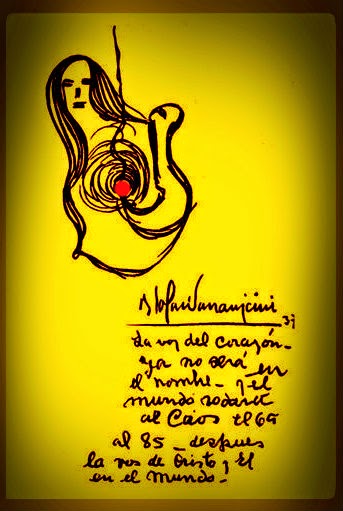 B Solari Parravicini
37
La voz del corazón-
ya no será en
el hombre- y el
mundo rodará
al Caos el
al 85 - despues
la vos de Cristo y Él
en el Mundo-